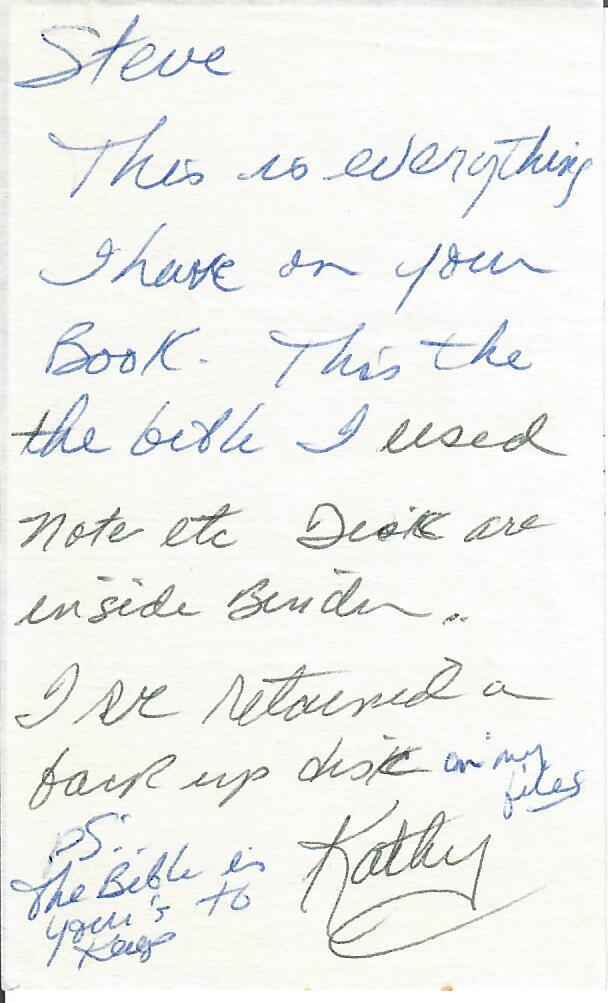 Steve
This is everything
I have on your
Book. This the
the bible I used
Note etc Disk are
inside Binder..
I've retained a
back up disk on my
files
Kathy
PS..
The Bible is
your's to
Keep